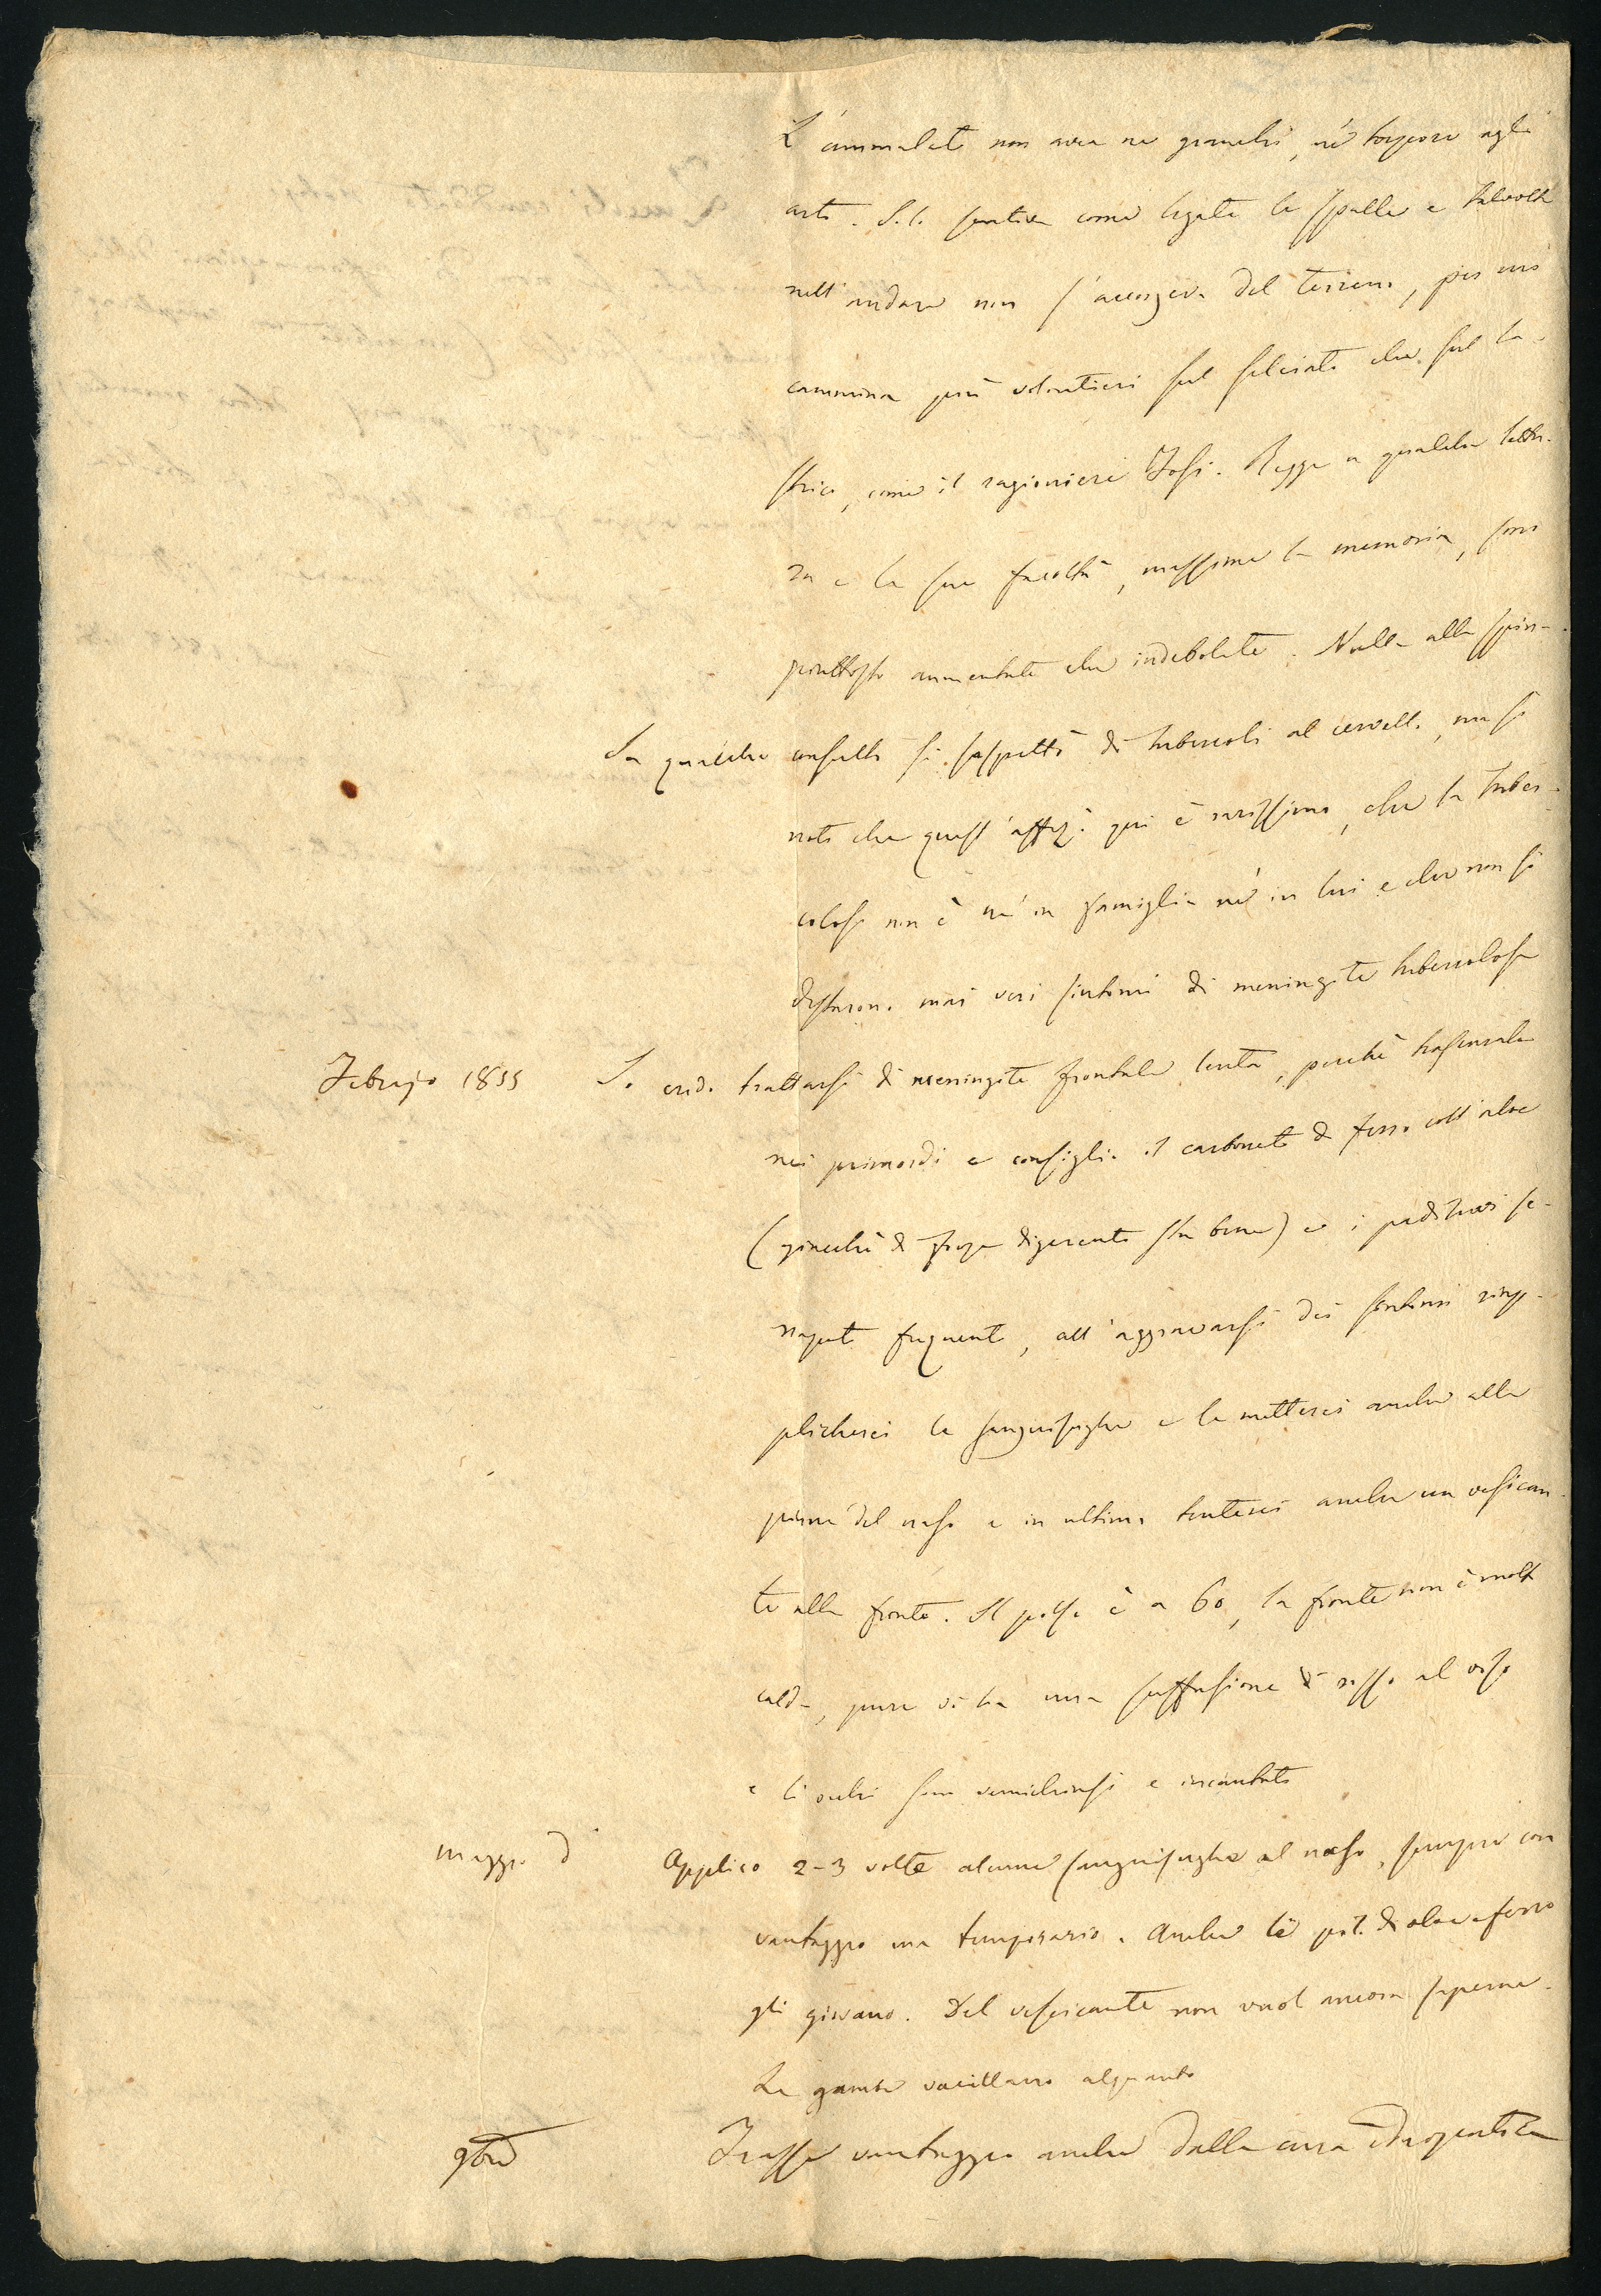 L'ammalato non avea nè granchi, nè torpore agli
arti. S. l. sentiva come legate le spalle e talvolta
nell'andare non s'accorgeva del terreno, per cui
cammina più volontieri sul selciato che sul la-
strico, come il ragioniere Tosi. Regge a qualche lettu-
ra e le sue facoltà, massime la memoria, sono
piuttosto aumentate che indebolite. Nulla alla spin-
In qualche consulto si sospettò di tubercoli al cervello, ma si
notò che quest'affez. qui è rarissima, che la tuber-
colosi non è nè in famiglia nè in lui e che non si
destarono mai veri sintomi di meningite tubercolosa
Febrajo 1855 Io credo trattarsi di meningite frontale lenta, perchè trascurata
nei primordi e consiglio il carbonato di ferro coll'aloe
(giacchè di forza digerente sta bene) e i pediluvi se-
napati frequenti, all'aggravarsi dei sintomi riap-
plicherei le sanguisughe e le metterei anche alle
pinne del naso e in ultimo tenterei anche un vescican-
te alla fronte. Il polso è a 60, la fronte non è molto
calda, pure vi ha una suffusione di rosso al viso
e li occhi sono semichiusi e incantati
Maggio d Applico 2-3 volte alcune sanguisughe al naso, sempre con
vantaggio ma temporario. Anche le pil. di aloe e ferro
gli giovano. Del vescicante non vuol ancora saperne.
Le gambe vacillano alquanto
9bre Trasse vantaggio anche dalla cura idropatica